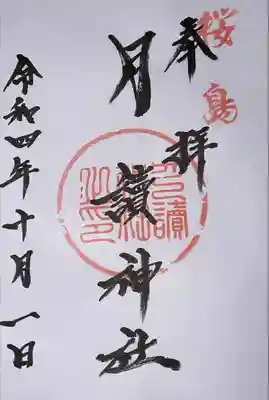 桜島
奉拝
月讀神社
令和四年十月一日
月讀神社之印